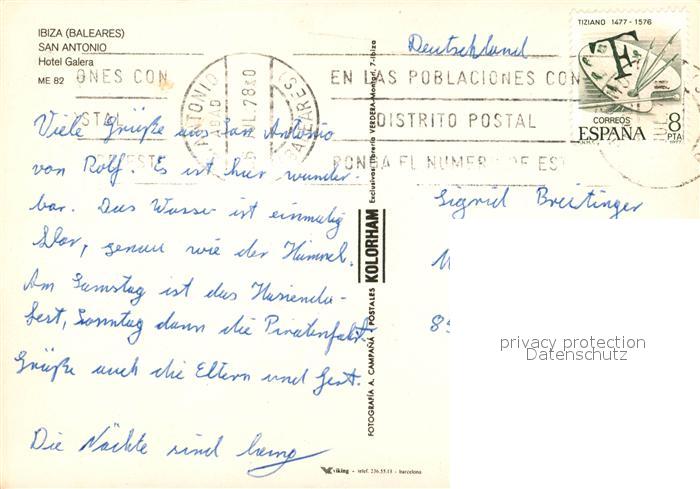 IBIZA (BALEARES)
SAN ANTONIO
Hotel Galera
ME 82
TIZIANO 1477 - 1576
CORREOS
ESPAÑA 8
PTA
ONES CON
STAL
ANTONIO
ABAD
JUL. 78
BALEARES
EN LAS POBLACIONES CON
DISTRITO POSTAL
PONGA EL NUMERO DE EST
Deutschland
Viele Grüße aus San Antonio
von Rolf. Es ist hier wunder-
bar. Das Wasser ist einmalig
klar, genau wie der Himmel.
Am Samstag ist das Hacienda-
fest, Sonntag dann die Piratenfahrt.
Grüße auch die Eltern und Gest.
Die Nächte sind lang
Sigrid Breitinger
8
privacy protection
Datenschutz
FOTOGRAFIA A. CAMPAÑÁ POSTALES KOLORHAM Exclusivas Librería VERDERA-Montgri, 7-Ibiza
viking - telef. 236.55.13 - barcelona